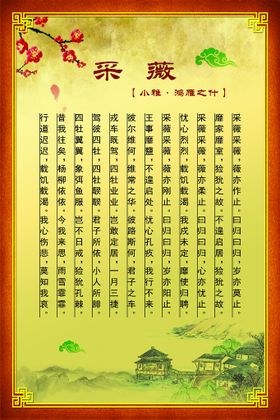 采薇
【小雅·鸿雁之什】
采薇采薇，薇亦作止。曰归曰归，岁亦莫止。
靡家靡室，猃狁之故。不遑启居，猃狁之故。
采薇采薇，薇亦柔止。曰归曰归，心亦忧止。
忧心烈烈，载饥载渴。我戍未定，靡使归聘。
采薇采薇，薇亦刚止。曰归曰归，岁亦阳止。
王事靡盬，不遑启处。忧心孔疚，我行不来。
彼尔维何，维常之华。彼路斯何，君子之车。
戎车既驾，四牡业业。岂敢定居，一月三捷。
驾彼四牡，四牡骙骙。君子所依，小人所腓。
四牡翼翼，象弭鱼服。岂不日戒，猃狁孔棘。
昔我往矣，杨柳依依。今我来思，雨雪霏霏。
行道迟迟，载饥载渴。我心伤悲，莫知我哀。